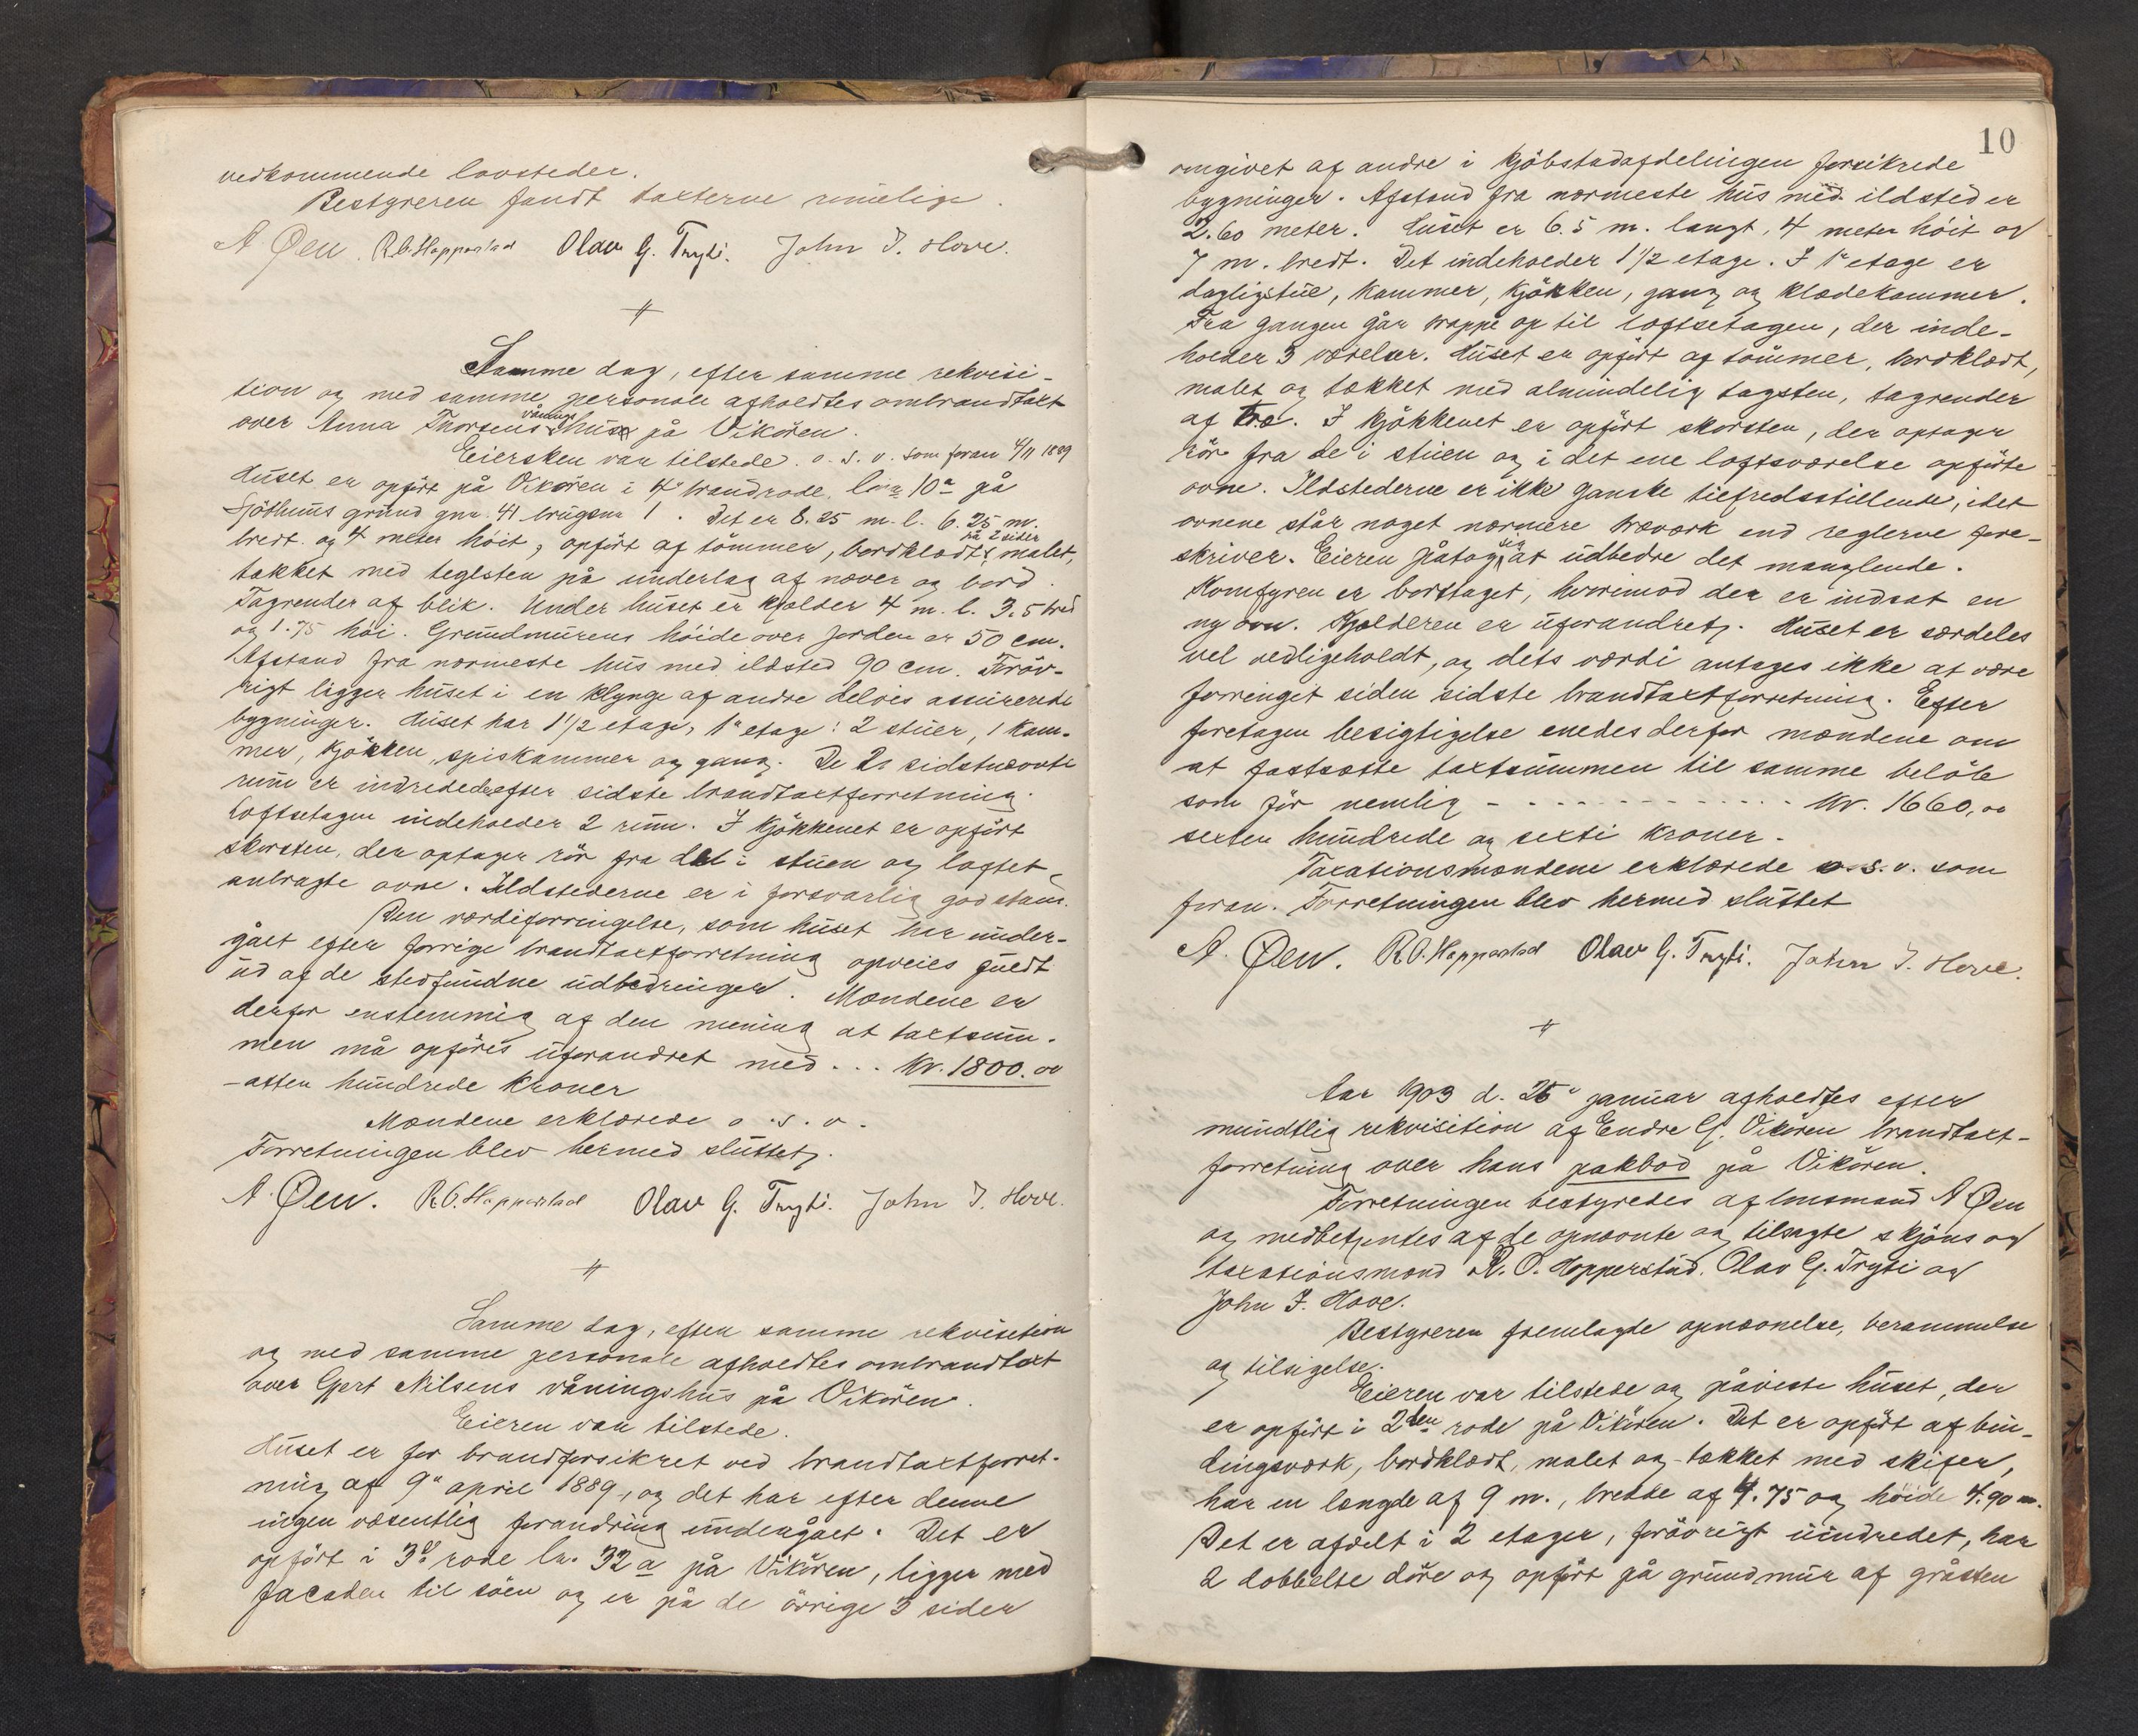 vedkommende lovsteder.
Bestyreren fandt taxterne rimelige.
A Øen. R.O. Hopperstad Olav G. Tryti. John J. Hove.
Samme dag, efter samme rekvisi-
tion og med samme personale afholdtes ombrandtaxt
over Anna Thorsens våningshus på Vikören.
Eiersken var tilstede. o. s. v. som foran 4/11 1889
Huset er opfört på Vikören i 4de brandrode, 10a på
grund gnr. 41 brugsnr 1. Det er 8.25 m. l. 6.25 m.
bredt og 4 meter höit, opfört af tömmer, bordklædt på 2 sider, malet,
tækket med teglsten på underlag af næver og bord.
Tagrender af blik. Under huset er kjælder 4 m. l. 3.5 bred
og 1.75 höi. Grundmurens höide over jorden er 50 cm.
Afstand fra nærmeste hus med ildsted 90 cm. Foröv-
rigt ligger huset i en klynge af andre delvis assurerede
bygninger. Huset har 1 1/2 etage, 1ste etage: 2 stuer, 1 kam-
mer, kjökken, spiskammer og gang. De 2 sidstnævnte
rum er indredede efter sidste brandtaxtforretning.
Loftsetagen indeholder 2 rum. I kjökkenet er opfört
skorsten, der optager rör fra de i stuen og loftet
anbragte ovne. Ildstederne er i forsvarlig god stand.
Den værdiforringelse, som huset har under-
gået efter forrige brandtaxtforretning opveies fuldt
ud af de stedfundne udbedringer. Mændene er
derfor enstemmig af den mening at taxtsum-
men må opföres uforandret med... Kr. 1800.00
-atten hundrede kroner
Mændene erklærede o. s. v.
Forretningen blev hermed sluttet.
A. Øen. R.O. Hopperstad Olav G. Tryti. John J. Hove.
Samme dag, efter samme rekvisition
og med samme personale afholdtes ombrandtaxt
over Gjert Nilsens våningshus på Vikören.
Eieren var tilstede.
Huset er för brandforsikret ved brandtaxtforret-
ning af 9de april 1889, og det har efter denne
ingen væsentlig forandring undergået. Det er
opfört i 3die rode lnr. 32a på Vikören, ligger med
facaden til söen og er på de övrige 3 sider
10
omgivet af andre i kjöbstadafdelingen forsikrede
bygninger. Afstand fra nærmeste hus med ildsted er
2.60 meter. Huset er 6.5 m. langt, 4 meter höit og
7 m. bredt. Det indeholder 1 1/2 etage. I 1ste etage er
dagligstue, kammer, kjökken, gang og klædekammer.
Fra gangen går trappe op til loftsetagen, der inde-
holder 3 værelser. Huset er opfört af tömmer, bordklædt,
malet og tækket med almindelig tagsten, tagrender
af træ. I kjökkenet er opfört skorsten, der optager
rör fra de i stuen og i det ene loftsværelse opförte
ovne. Ildstederne er ikke ganske tilfredsstillende, idet
ovnene står noget nærmere træværk end reglerne fore-
skriver. Eieren påtog sig at udbedre det manglende.
Komfyren er borttaget, hvorimod der er indsat en
ny ovn. Kjælderen er uforandret. Huset er særdeles
vel vedligeholdt, og dets værdi antages ikke at være
forringet siden sidste brandtaxtforretning. Efter
foretagen besigtigelse enedes derfor mændene om
at fastsætte taxtsummen til samme belöb
som för nemlig - - - - - - - - - Kr. 1660,00
sexten hundrede og sexti kroner.
Taxationsmændene erklærede o. s. v. som
foran. Forretningen blev hermed sluttet
A. Øen. R.O. Hopperstad Olav G. Tryti. John J. Hove.
Aar 1903 d. 26de januar afholdtes efter
mundtlig rekvisition af Endre G. Vikören brandtaxt-
forretning over hans pakbod på Vikören.
Forretningen bestyredes af lensmand A Øen
og medbetjentes af de opnævnte og tilsagte skjöns og
taxationsmænd R. O. Hopperstad, Olav G. Tryti og
John J. Hove.
Bestyreren fremlagde opnævnelse, berammelse
og tilsigelse.
Eieren var tilstede og påviste huset, der
er opfört i 2den rode på Vikören. Det er opfört af bin-
dingsværk, bordklædt, malet og tækket med skifer,
har en længde af 9 m., bredde af 4.75 og höide 4.90 m.
Det er afdelt i 2 etager, forövrigt uindredet, har
2 dobbelte döre og opfört på grundmur af gråsten